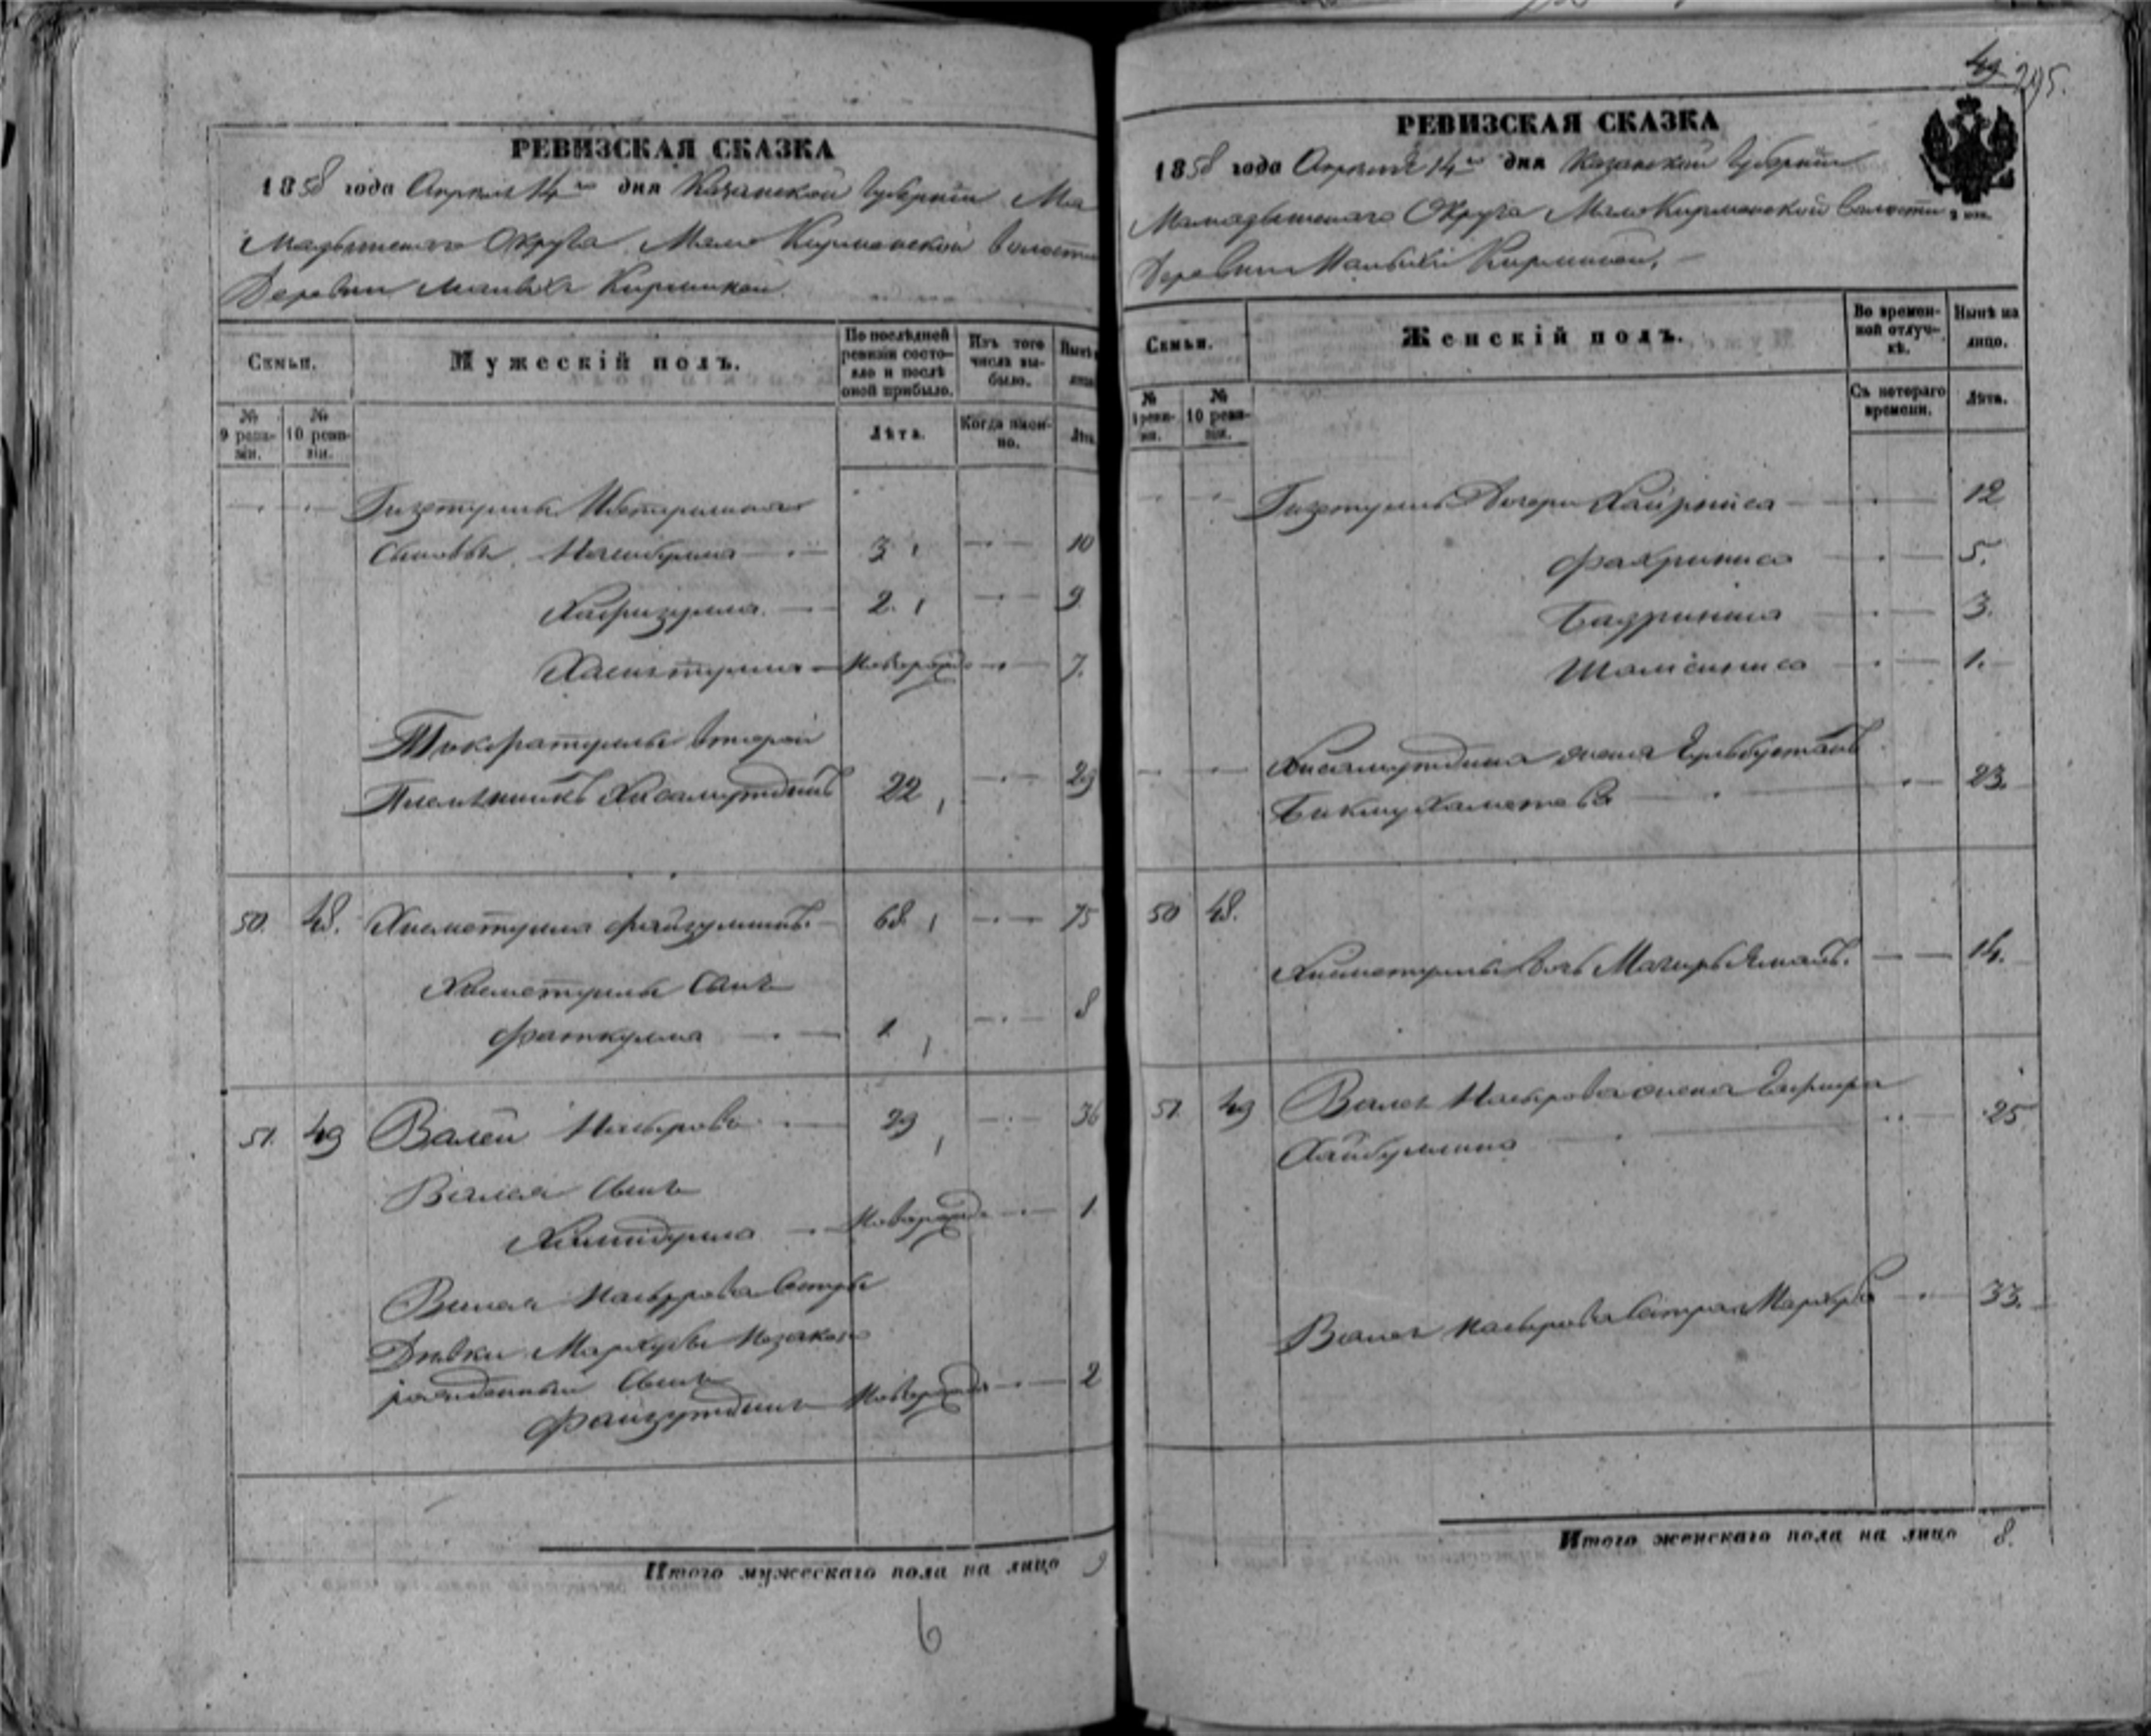 РЕВИЗСКАЯ СКАЗКА
1858 года Апреля 14го дня Казанской Губернии Ма
мадышскаго Округа Мало Кирменской Волости
Деревни Малых Кирменей
Семьи.
Мужескій полъ.
По послѣдней ревизіи состояло и послѣ оной прибыло.
Изъ того числа выбыло.
Нынѣ
№ 9 ревизіи.
№ 10 ревизіи.
Лѣта.
Когда именно.
Лѣта
Гизетуллы
Сыновья 3 10
Хафизулла 2. 9
Новорожд 7.
второй
Племянникъ Хисамутдинъ 22 29
50. 48. Файзуллинъ 68 75
Сынъ
Фаткулла 1 8
51. 49 Валей Насыровъ 29 36
Валея Сынъ
Новорожд 1
Валея Насырова Сестры
Дѣвки Мархубы Незаконно
рожденный Сынъ
Файзутдинъ Новорожд 2
Итого мужескаго пола на лицо 9
6
49 295.
РЕВИЗСКАЯ СКАЗКА
1858 года Апреля 14го дня Казанской Губернии
Мамадышскаго Округа Мало Кирменской Волости
Деревни Малыхъ Кирменей,
Семьи.
Женскій полъ.
Во временной отлучкѣ.
Нынѣ на лицо.
№ 9 ревизіи.
№ 10 ревизіи.
Съ котораго времени.
Лѣта.
Гизетуллы Дочери Хайрниса 12
Фахриниса 5.
Бадриниса 3.
Шамсиниса 1.
Хисамутдина жена Гульбустанъ
Бикмухаметева 23.
50 48.
дочь 14.
51. 49 Валея Насырова жена
Хайбуллина 25
Валея Насырова Сестра Мархуба 33.
Итого женскаго пола на лицо 8.